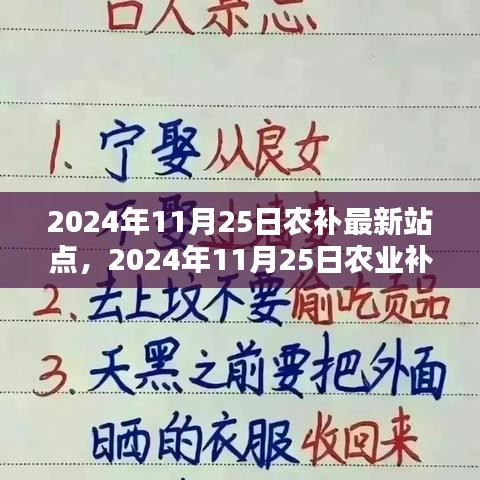 1、宁娶从良女
2024年11月25日农补最新站
点，2024年11月25日农业补
2、去上坟不要偷吃贡品
3、天黑之前要把外面
晒的衣服收回来